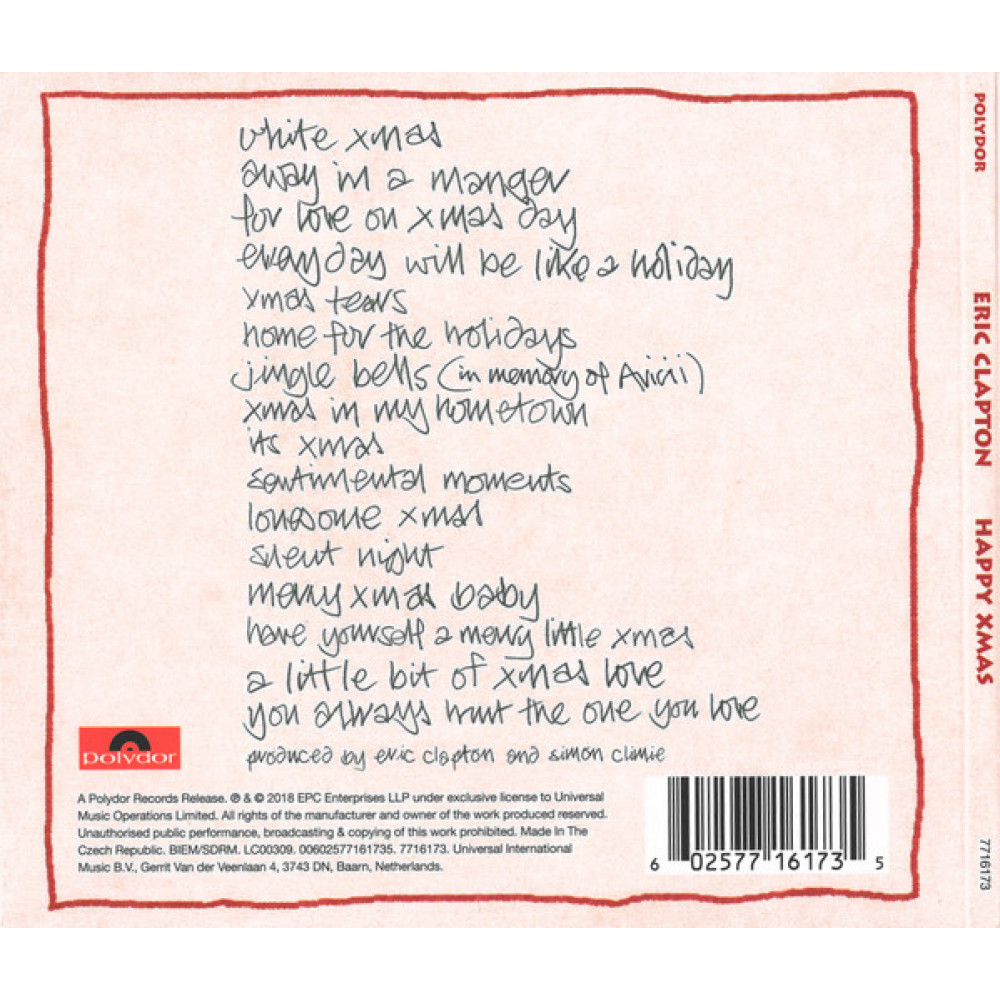 white xmas
away in a manger
for love on xmas day
everyday will be like a holiday
xmas tears
home for the holidays
jingle bells (in memory of Avicii)
xmas in my hometown
its xmas
sentimental moments
lonesome xmas
silent night
merry xmas baby
have yourself a merry little xmas
a little bit of xmas love
you always hurt the one you love
produced by eric clapton and simon climie
polydor
A Polydor Records Release. ℗ & © 2018 EPC Enterprises LLP under exclusive license to Universal
Music Operations Limited. All rights of the manufacturer and owner of the work produced reserved.
Unauthorised public performance, broadcasting & copying of this work prohibited. Made In The
Czech Republic. BIEM/SDRM. LC00309. 00602577161735. 7716173. Universal International
Music B.V., Gerrit Van der Veenlaan 4, 3743 DN, Baarn, Netherlands.
6 02577 16173 5
POLYDOR
ERIC CLAPTON HAPPY XMAS
7716173